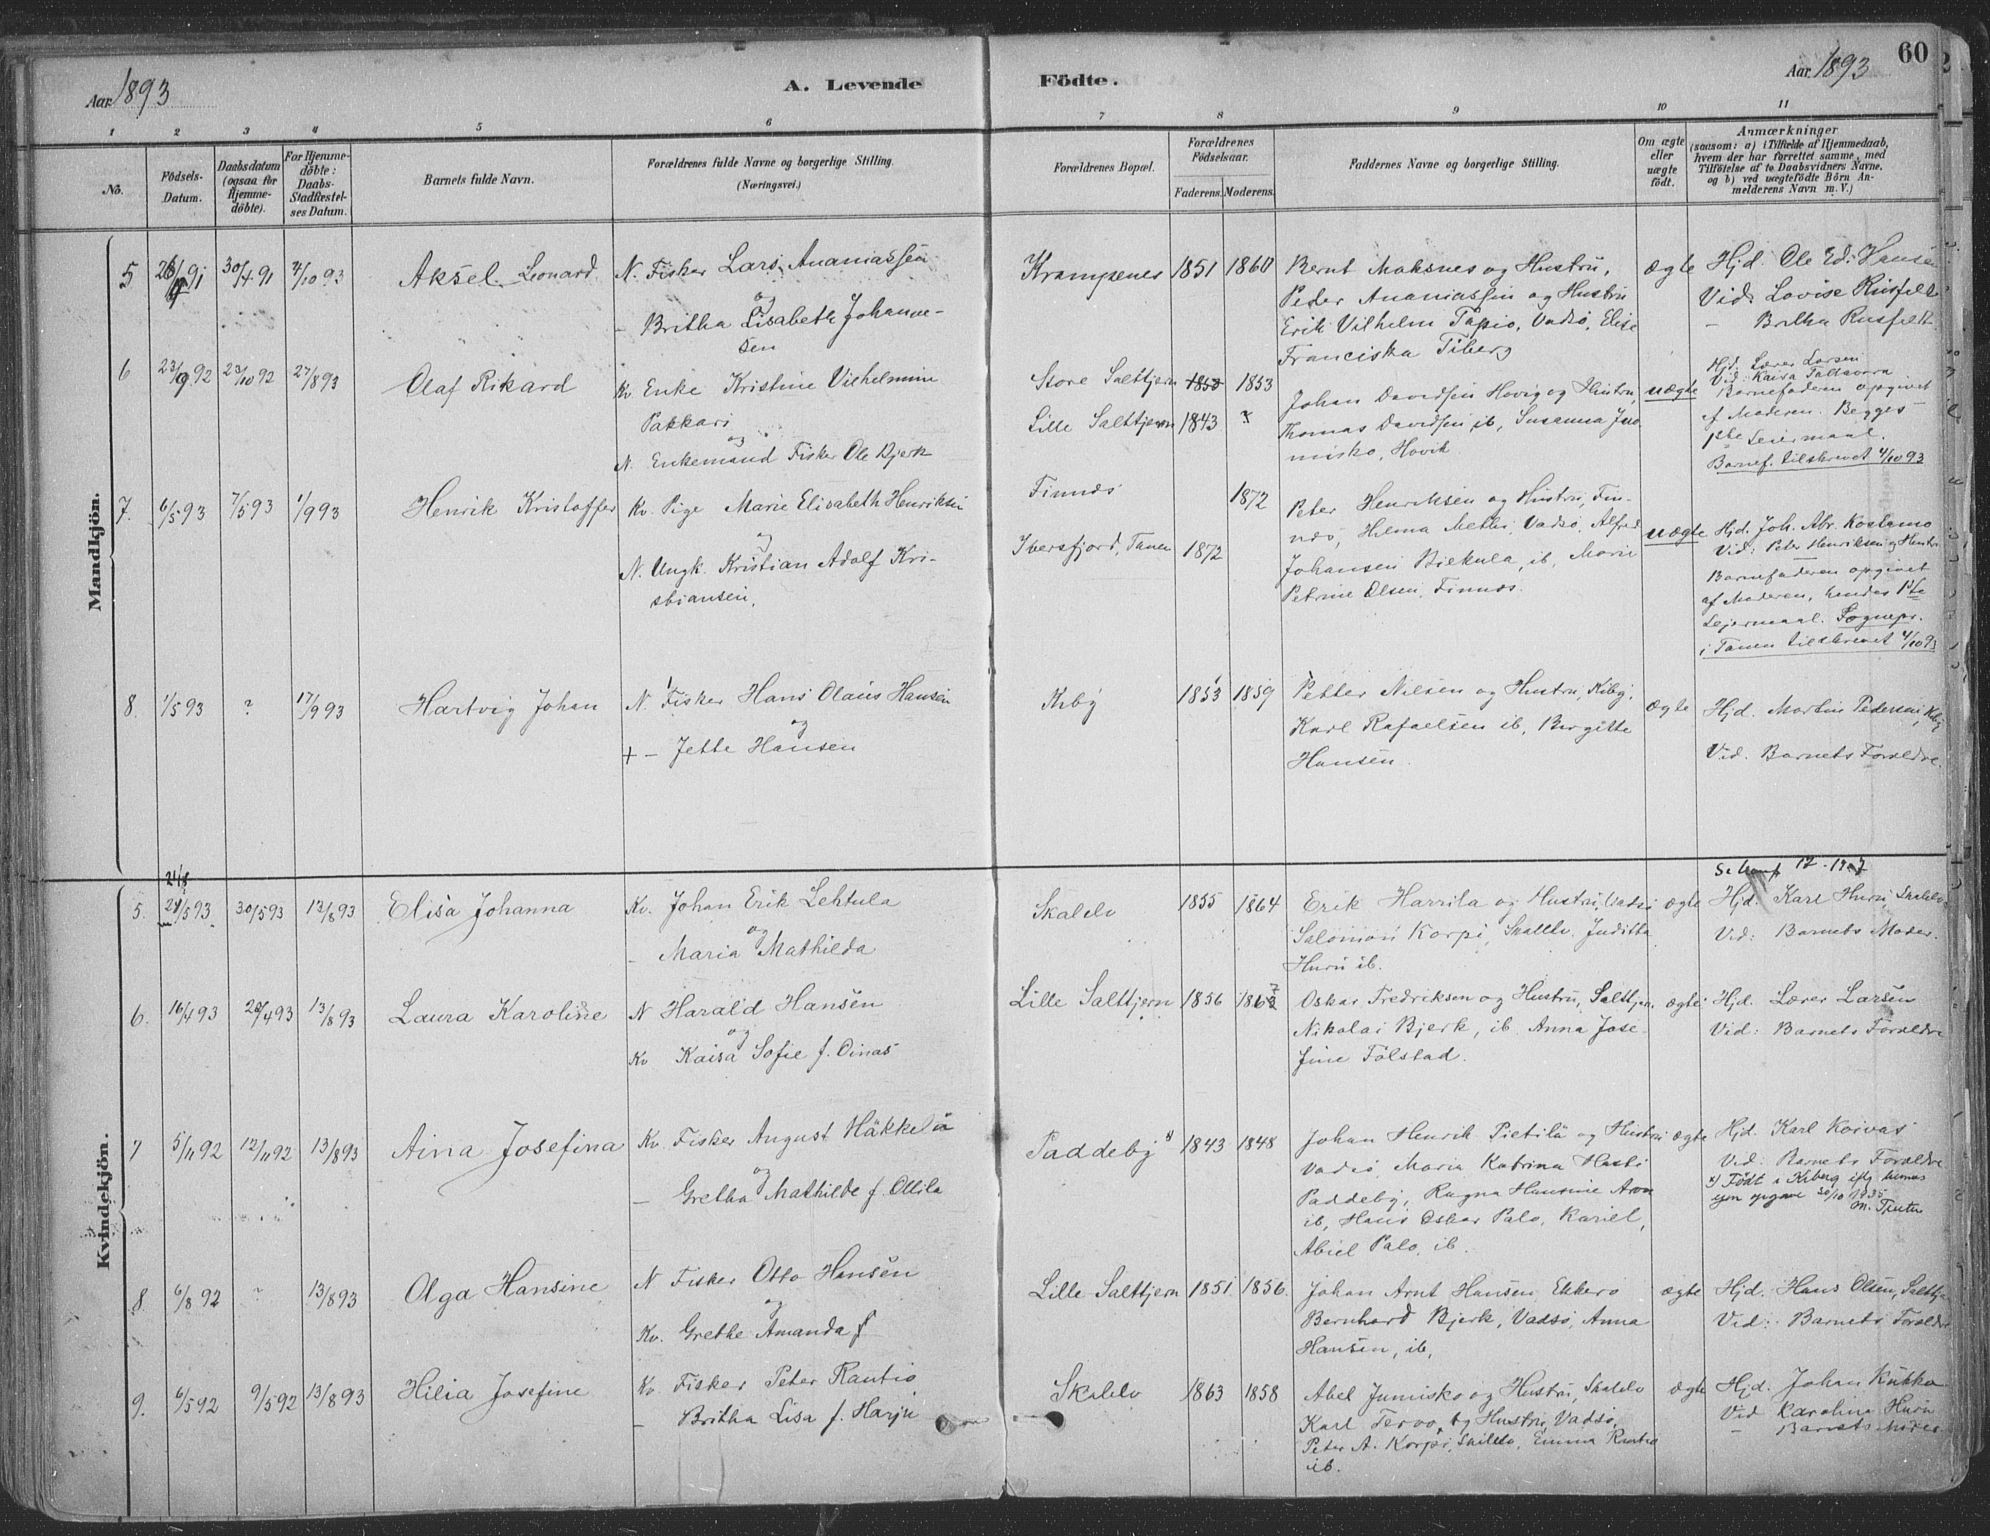 Aar 1893
A. Levende Födte.
Aar 1893
60
1 2 3 4 5 6 7 8 9 10 11
No.
Födsels-Datum.
Daabsdatum (ogsaa for Hjemme-döbte).
For Hjemme-döbte: Daabs-Stadfæstel-ses Datum.
Barnets fulde Navn.
Forældrenes fulde Navne og borgerlige Stilling.
(Næringsvei.)
Forældrenes Bopæl.
Forældrenes Födselsaar.
Faderens. Moderens.
Faddernes Navne og borgerlige Stilling.
Om ægte eller uægte födt.
Anmærkninger
(saasom: a) i Tilfælde af Hjemmedaab,
hvem der har forrettet samme, med
Tilföielse af to Daabsvidners Navne,
og b) ved uægtefödte Börn An-
melderens Navn m. V.)
Mandkjön.
5 30/4 91 4/10 93 Aksel Leonard
N. Fisker Lars Ananiassen
og
– Britha Lisabeth Johanne-
sen
Krampenes 1851 1860
Bernt Moksnes og Hustru,
Peder Ananiassen og Hustru
Erik Vilhelm Tapio, Vadsö, Elise
Franciska Tiberg
ægte
Hjd. Ole Ed. Hansen
Vid. Lovise Rusfeldt
– Britha Rusfeldt
6 23/9 92 23/10 92 27/8 93 Olaf Rikard
Kv. Enke Kristine Vilhelmine
Pakkari
og
N. Enkemand Fisker Ole Bjerk
Store Salttjern 1853 1853
Lille Salttjern 1843
Johan Davidsen Hovig og Hustru,
Thomas Davidsen, ib, Susanna Juno
misko, Hovik
uægte
Hjd: Lærer Larsen
Vid: Kaisa Taltavara
Barnefaderen opgivet
af Moderen. Begges
1ste Leiermaal.
Barnef. tilskrevet 4/10 93
7. 6/5 93 7/5 93 1/9 93 Henrik Kristoffer
Kv. Pige Marie Elisabeth Henriksen
og
N. Ungk. Kristian Adolf Kri-
stiansen,
Finnæs 1872
Ibersfjord, Tanen 1872
Peter Henriksen og Hustru, Fin-
næs, Hilma Metti, Vadsö, Alfred
Johansen Biekula, ib, Marie
Petrine Olsen, Finnæs.
uægte
Hjd. Joh. Abr. Kostamo
Vid: Peter Henriksen og Hustru
Barnefaderen opgivet
af Moderen, hendes 1ste
Lejermaal. Sognepr.
i Tanen tilskrevet 4/10 93
8. 1/5 93 ? 17/9 93 Hartvig Johan
N. Fisker Hans Olaus Hansen
og
+ – Jette Hansen
Kiby 1853 1859
Petter Nilsen og Hustru, Kiby,
Karl Rafaelsen ib, Birgitte
Hansen.
ægte
Hjd. Martin Pedersen, Kiby
Vid. Barnets Forældre.
Kvindekjön.
21/8
5. 21/5 93 30/5 93 13/8 93 Elisa Johanna
Kv. Johan Erik Lehtula
og
– Maria Mathilda
Skallelv 1855 1864
Erik Harrila og Hustru, Vadsö
Salomon Korpi, Skallelv, Juditta
Huru ib.
ægte
Hjd. Karl Huru, Skallelv
Vid: Barnets Moder.
6. 16/4 93 20/4 93 13/8 93 Laura Karoline
N Harald Hansen
og
Kv Kaisa Sofie f. Oinas
Lille Salttjern 1856 1862 7
Oskar Fredriksen og Hustru, Salttjern
Nikolai Bjerk, ib. Anna Jose-
fine Tolstad.
ægte
Hjd. Lærer Larsen
Vid: Barnets Forældre
7 5/11 92 12/11 92 13/8 93 Aina Josefina
Kv. Fisker August Häkkelä
og
– Gretha Mathilde f. Ollila
Paddeby x) 1843 1848
Johan Henrik Pietilä og Hustru
Vadsö, Maria Katrina Hasti
Paddeby, Ragna Hansine Aron
ib, Hans Oskar Palo, Kariel,
Abiel Palo, ib.
ægte
Hjd. Karl Koivas
Vid: Barnets Forældre
x) Födt i Kiberg iflg hennes
egen opgave 30/10 1935
8 6/8 92 ? 13/8 93 Olga Hansine
N Fisker Otto Hansen
og
Kv. Grethe Amanda f
Lille Salttjern 1851 1856.
Johan Arnt Hansen, Ekkerö
Bernhard Bjerk, Vadsö, Anna
Hansen, ib,
ægte
Hjd. Hans Olsen, Salttj.
Vid: Barnets Forældre
9. 6/5 92 9/5 92 13/8 93 Hilia Josefine
Kv Fisker Peter Rautio
– Britha Lisa f. Harju
Skallelv 1863 1858
Abel Junnisko og Hustru, Skallelv
Karl Tervo, og Hustru, Vadsö,
Peter A. Korpi, Skallelv, Emma Rautio
ib.
ægte
Hjd. Johan Kukka
Vid Karolina Huru
– Barnets Moder